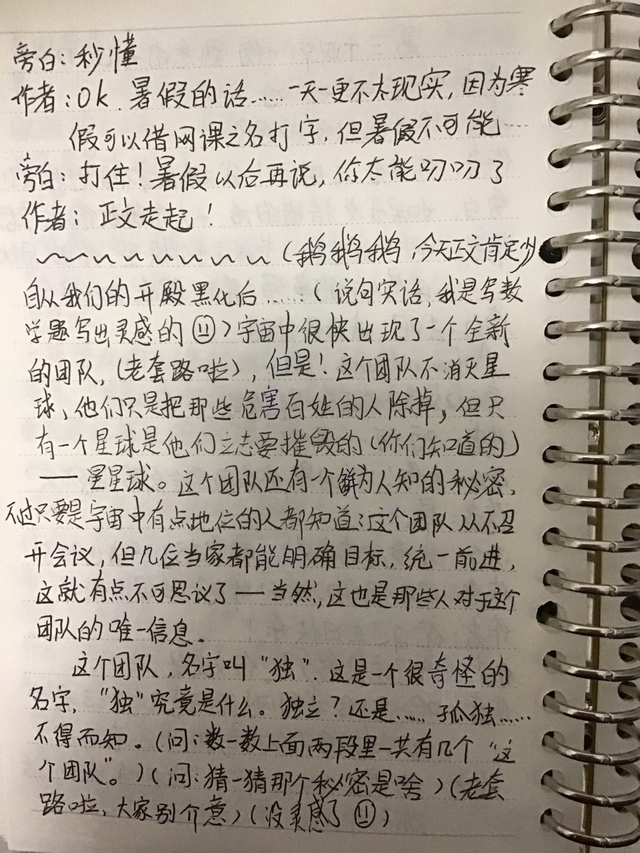 旁白：秒懂
作者：Ok. 暑假的话……一天一更不太现实，因为寒
假可以借网课之名打字，但暑假不可能——
旁白：打住！暑假以后再说，你太能叨叨了
作者：正文走起！
～～～～～～～～（鹅鹅鹅，今天正文肯定少
自从我们的开殿黑化后……（说句实话，我是写数
学题写出灵感的）宇宙中很快出现了一个全新
的团队，（老套路啦），但是！这个团队不消灭星
球，他们只是把那些危害百姓的人除掉，但只
有一个星球是他们立志要摧毁的（你们知道的）
——星星球。这个团队还有一个鲜为人知的秘密，
不过只要是宇宙中有点地位的人都知道：这个团队从不召
开会议，但几位当家都能明确目标，统一前进，
这就有点不可思议了——当然，这也是那些人对于这个
团队的唯一信息。
这个团队，名字叫“独”。这是一个很奇怪的
名字，“独”究竟是什么。独立？还是……孤独……
不得而知。（问：数一数上面两段里一共有几个“这
个团队”。）（问：猜一猜那个秘密是啥）（老套
路啦，大家别介意）（没灵感了）